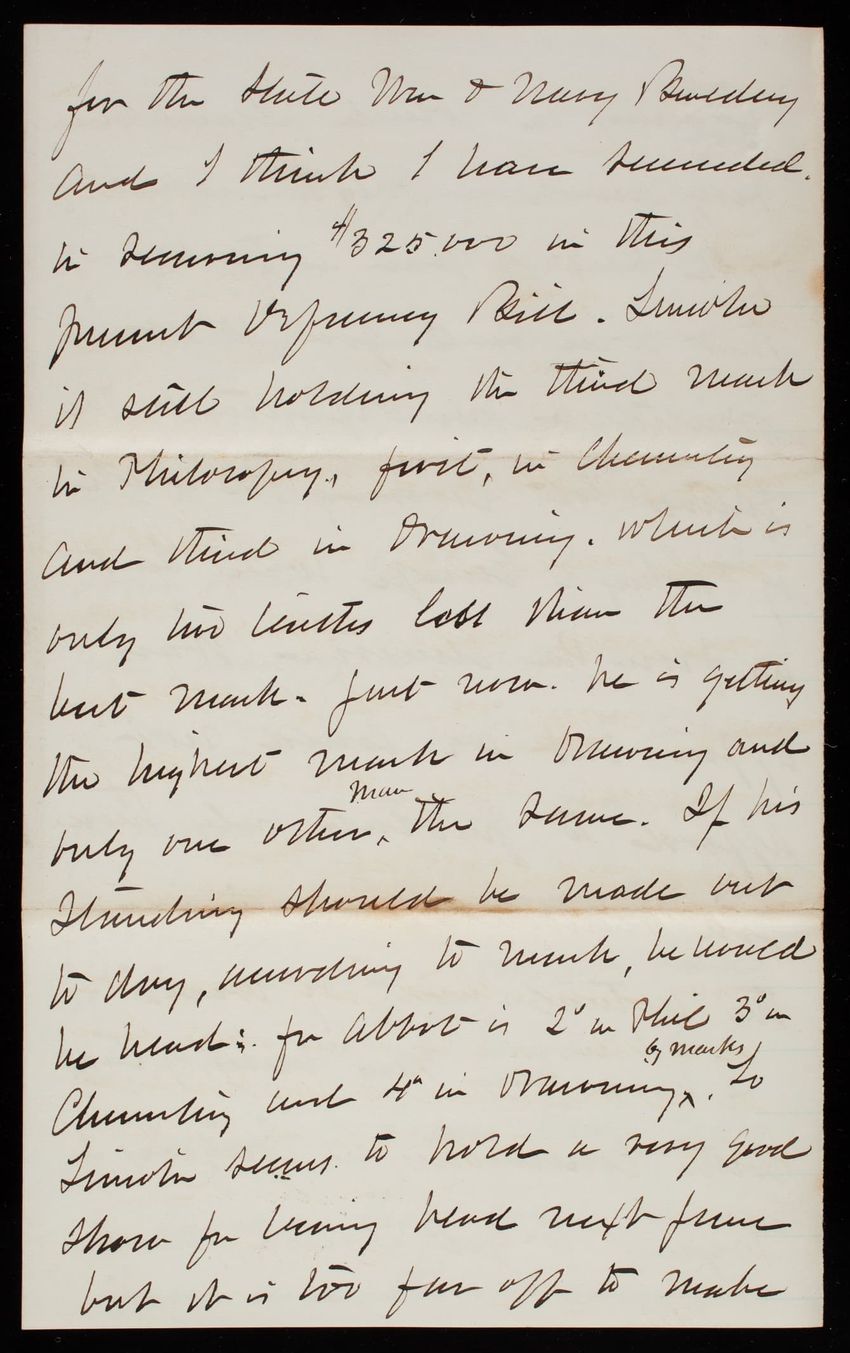 for the State War & Navy Building
and I think I have succeeded.
in securing $325.000 in this
present Deficiency Bill. Lincoln
is still holding the third mark
in Philosophy., first, in Chemistry
and third in Drawing. which is
only two tenths less than the
best mark. Just now. he is getting
the highest mark in Drawing and
man
only one other, the same. If his
Standing should be made out
to day, according to mark, he would
be head: for Abbot is 2d in Phil 3d in
by marks
Chemistry and 4th in Drawing. So
Lincoln seems to hold a very good
show for being head next June
but it is too far off to make